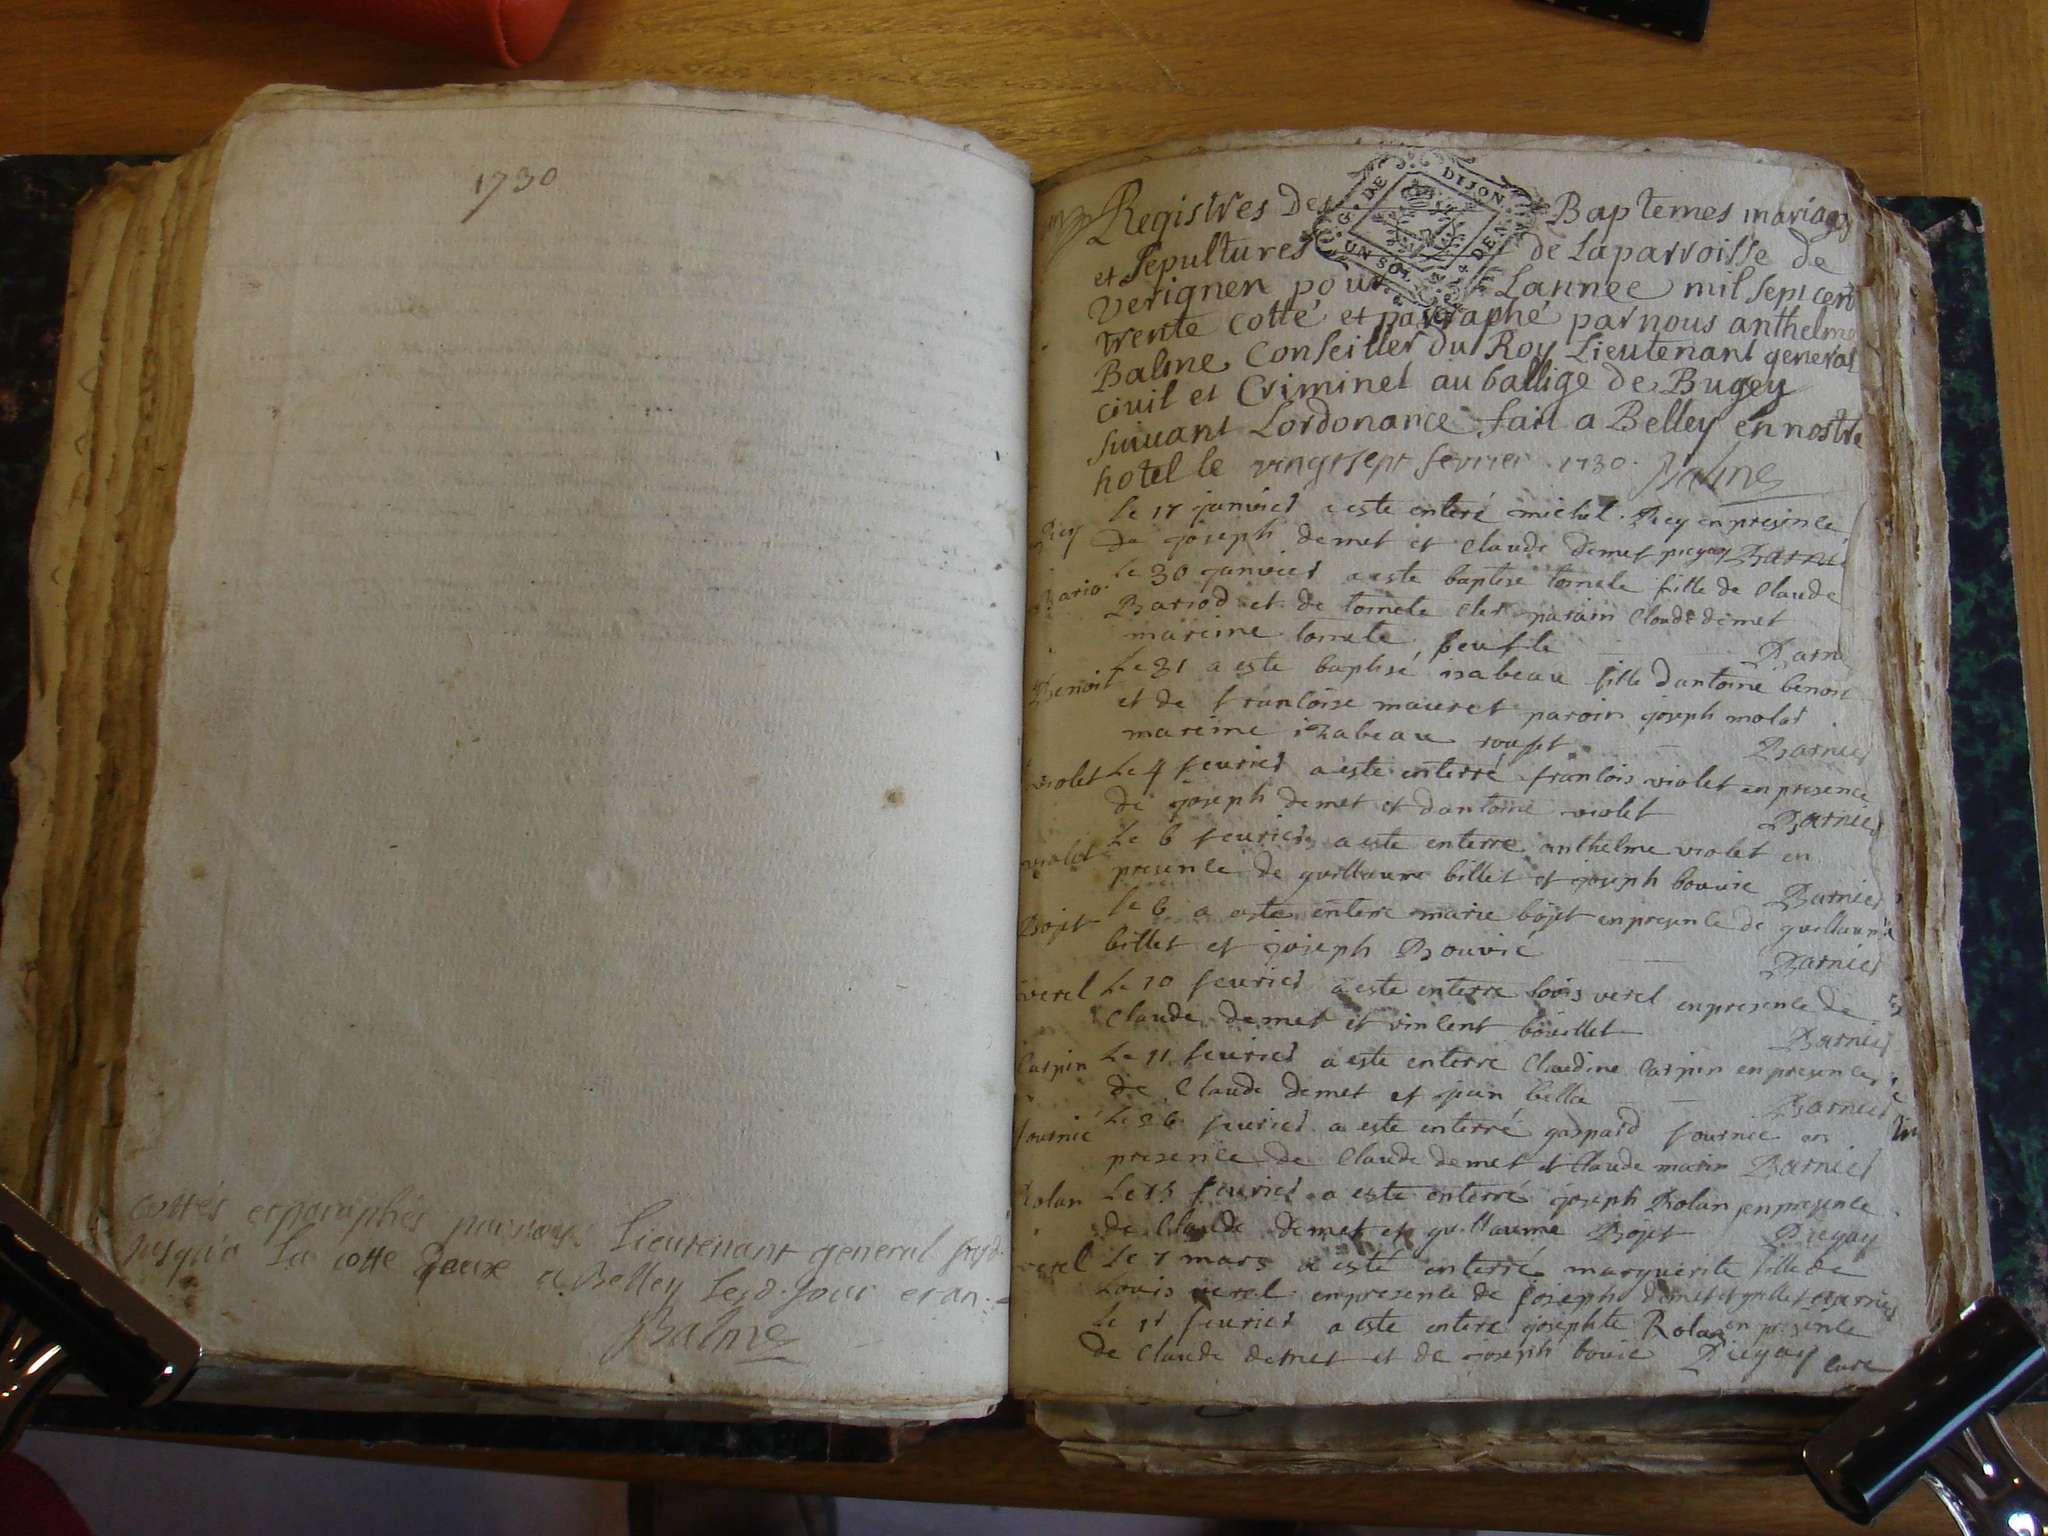 1730
cottés et paraphés par nous Lieutenant general susd.
jusqu'a La cotte deux a Belley lesd. jour et an.
Balme
G. DE DIJON
UN SOL 4 DEN.
Registres Des Baptemes mariages
et Sepultures de Laparroisse de
Verignen pour Lannee mil sept cent
trente cotté et paraphé par nous anthelme
Balme Conseiller du Roy Lieutenant general
civil et Criminel au balliage de Bugey
suivant Lordonance fait a Belley en nostre
hotel le vingt sept fevrier 1730. Balme
Rey
Le 17 janvier a este enteré michel Rey en presence
de joseph demet et Claude demet pregay Barnie
Bario
Le 30 janvier a este baptise tomete fille de Claude
Bariod et de tomete cler parain Claude demet
mareine tomete Barn
Benoit
Le 31 a este baptisé isabeau fille dantoine benoit
et de francoise mauret paroin joseph molar
mareine izabeau rouset Barnier
violet
Le 4 feurier a este enterré francois violet en presence
de joseph demet et dantoine violet Barnier
violet
Le 6 feurier a este enterre anthelme violet en
presence de guillaume billet et joseph bouuie Barnier
Bojet
le 6 a este entere marie bojet en presence de guillaume
billet et joseph Bouvié Barnier
verel
Le 10 feurier a este enterre lovis verel en presence de
Claude demet et vincent bouillet Barnier
Carpin
Le 11 feurier a este enterre Claudine Carpin en presence
de Claude demet et jean bella Barnier
fournié
Le 26 feurier a este enterré gaspard fournie en
presence de Claude demet et Claude marin Barnier
Rolan
Le 15 feurier a este enterré joseph Rolan en presence
de Claude demet et guillaume Bojet Pregay
verel
Le 7 mars a esté enterré marguerite fille de
Louis verel en presence de joseph demet et Barnier
Le 11 feurier a este enteré josephte Rolan en presence
de Claude demet et de joseph bouie Pregay cure